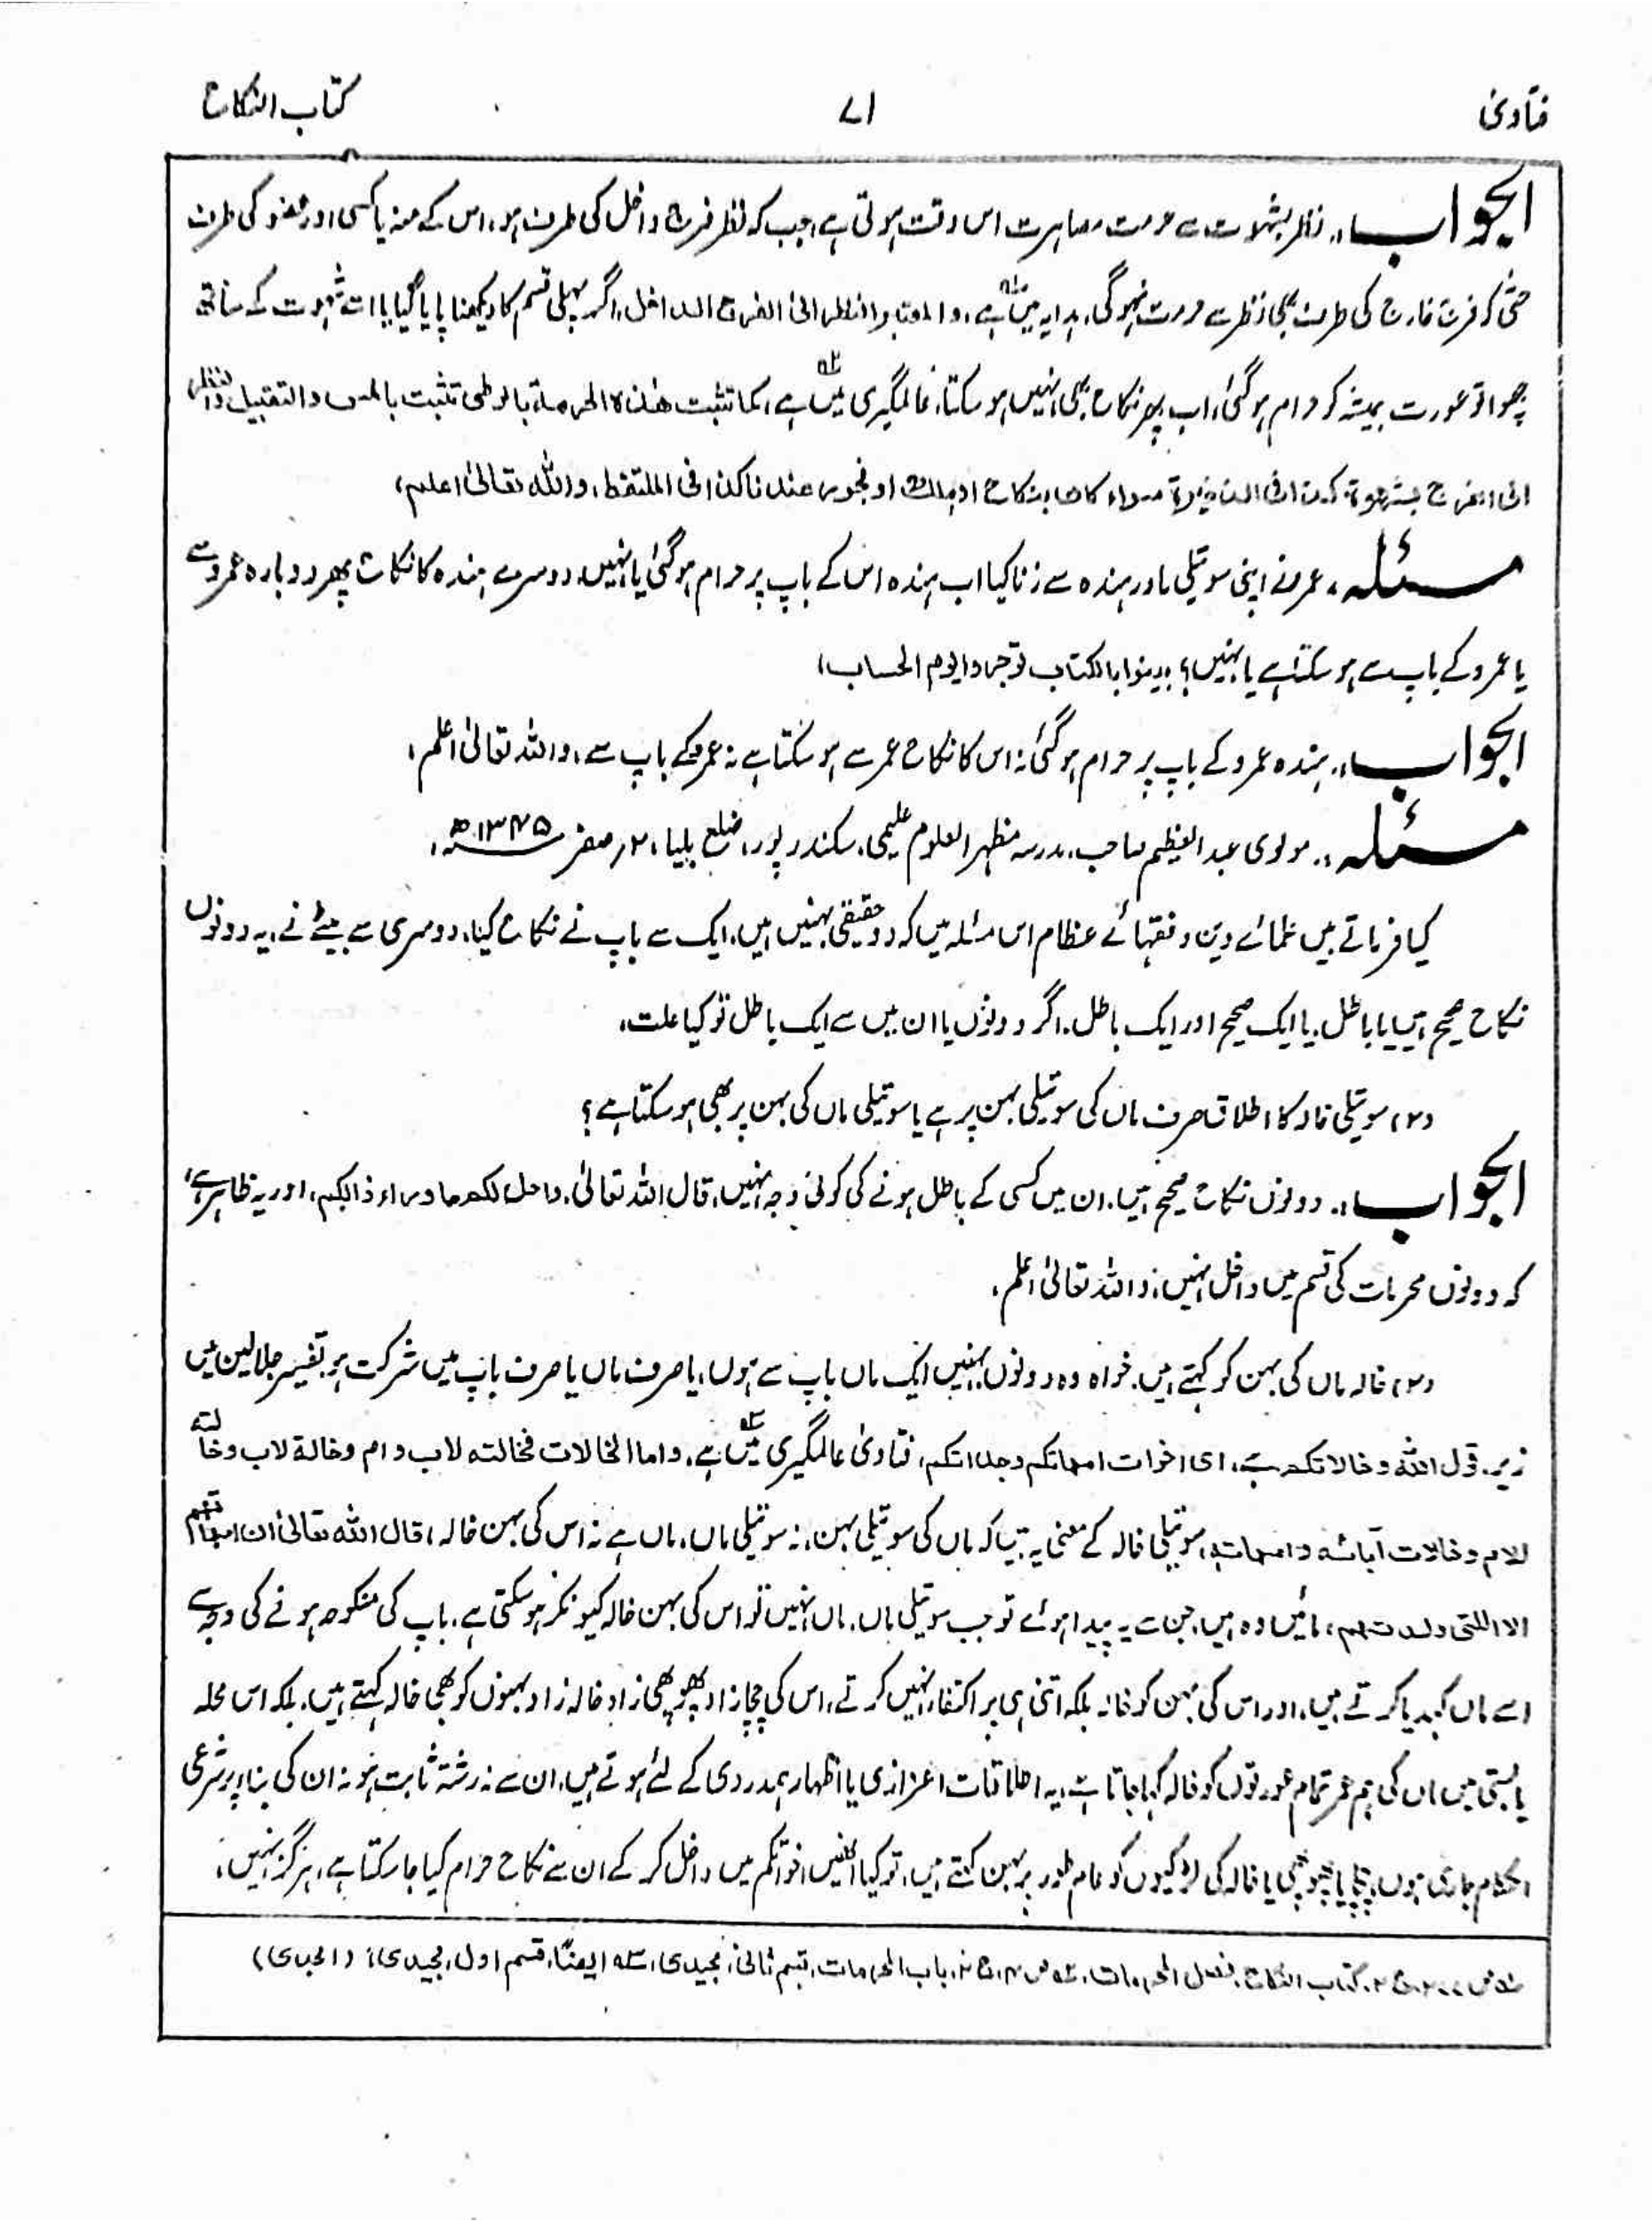 فتاویٰ
۷۱
کتاب النکاح
الجواب:۔ نظر بشہوت سے حرمت مصاہرت اس وقت ہوتی ہے، جب کہ نظر فرج داخل کی طرف ہو، اس کے منہ یا کسی اور عضو کی طرف
حتّٰی کہ فرج خارج کی طرف بھی نظر سے حرمت نہ ہوگی، ہدایہ میں ہے، والمعتبر النظر الی الفرج الداخل، اگر پہلی قسم کا دیکھنا پایا گیا یا اسے شہوت کے ساتھ
چھوا تو عورت ہمیشہ کو حرام ہوگئی، اب پھر نکاح بھی نہیں ہو سکتا، عالمگیری میں ہے، کما تثبت ھذہ الحرمۃ بالوطی تثبت بالمس والتقبیل والنظر
الی الفرج بشھوۃ کذا فی الذخیرۃ سواء کان بنکاح او ملک او فجور عندنا کذا فی الملتقط، واللہ تعالیٰ اعلم،
مسئلہ:۔ عمر نے اپنی سوتیلی مادر ہندہ سے زنا کیا اب ہندہ اس کے باپ پر حرام ہوگئی یا نہیں، دوسرے ہندہ کا نکاح پھر دوبارہ عمرو سے
یا عمرو کے باپ سے ہو سکتا ہے یا نہیں؟ بینوا بالکتاب توجروا یوم الحساب،
الجواب:۔ ہندہ عمرو کے باپ پر حرام ہوگئی نہ اس کا نکاح عمر سے ہو سکتا ہے نہ عمرو کے باپ سے، واللہ تعالیٰ اعلم،
مسئلہ:۔ مولوی عبد العظیم صاحب، مدرسہ مظہر العلوم علیمی، سکندر پور، ضلع بلیا، ۲؍ صفر ۱۳۴۵ھ،
کیا فرماتے ہیں علمائے دین و فقہائے عظام اس مسئلہ میں کہ دو حقیقی بہنیں ہیں، ایک سے باپ نے نکاح کیا، دوسری سے بیٹے نے، یہ دونوں
نکاح صحیح ہیں یا باطل، یا ایک صحیح اور ایک باطل، اگر دونوں یا ان میں سے ایک باطل تو کیا علت،
(۲) سوتیلی خالہ کا اطلاق صرف ماں کی سوتیلی بہن پر ہے یا سوتیلی ماں کی بہن پر بھی ہو سکتا ہے؟
الجواب:۔ دونوں نکاح صحیح ہیں، ان میں کسی کے باطل ہونے کی کوئی وجہ نہیں، قال اللہ تعالیٰ، واحل لکم ما وراء ذالکم، اور یہ ظاہر ہے،
کہ دونوں محرمات کی قسم میں داخل نہیں، واللہ تعالیٰ اعلم،
(۲) خالہ ماں کی بہن کو کہتے ہیں، خواہ وہ دونوں بہنیں ایک ماں باپ سے ہوں، یا صرف ماں یا صرف باپ میں شرکت ہو، تفسیر جلالین میں
زیر قول اللہ وخالاتکم ہے، ای اخوات امھاتکم وجداتکم، فتاویٰ عالمگیری میں ہے، واما الخالات فخالتہ لاب و ام وخالۃ لاب وخالتہ
لام وخالات آبائہ وامھاتہ، سوتیلی خالہ کے معنی یہ ہیں کہ ماں کی سوتیلی بہن، نہ سوتیلی ماں، ماں ہے نہ اس کی بہن خالہ، قال اللہ تعالیٰ ان امھاتھم
الا اللتی ولدنھم، مائیں وہ ہیں، جن سے یہ پیدا ہوئے تو جب سوتیلی ماں، ماں نہیں تو اس کی بہن خالہ کیونکر ہو سکتی ہے، باپ کی منکوحہ ہونے کی وجہ سے
اسے ماں کہہ دیا کرتے ہیں، اور اس کی بہن کو خالہ بلکہ اتنی ہی پر اکتفا نہیں کرتے، اس کی چچازاد پھوپھی زاد خالہ زاد بہنوں کو بھی خالہ کہتے ہیں، بلکہ اس محلہ
یا بستی میں ماں کی ہم عمر تمام عورتوں کو خالہ کہا جاتا ہے، یہ اطلاقات اعزازی یا اظہار ہمدردی کے لئے ہوتے ہیں، ان سے نہ رشتہ ثابت ہو نہ ان کی بناء پر شرعی
احکام جاری ہوں، چچا یا پھوپھی یا خالہ کی لڑکیوں کو عام طور پر بہن کہتے ہیں، تو کیا انھیں اخواتکم میں داخل کر کے ان سے نکاح حرام کیا جا سکتا ہے، ہرگز نہیں،
کتاب النکاح، فصل المحرمات، باب المحرمات، قسم ثانی، مجیدی، ایضًا، قسم اول، مجیدی،